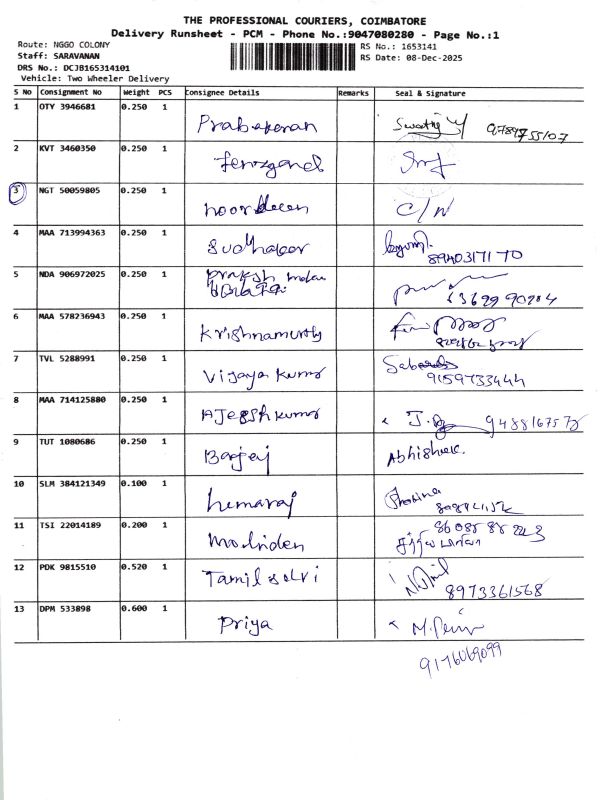 THE PROFESSIONAL COURIERS, COIMBATORE
Delivery Runsheet - PCM - Phone No.:9047080280 - Page No.:1
Route: NGGO COLONY
RS No.: 1653141
Staff: SARAVANAN
RS Date: 08-Dec-2025
DRS No.: DCJB165314101
Vehicle: Two Wheeler Delivery
S No Consignment No Weight PCS Consignee Details Remarks Seal & Signature
1 OTY 3946681 0.250 1 Prabakaran
2 KVT 3460350 0.250 1
3 NGT 50059805 0.250 1 noordeen C/N
4 MAA 713994363 0.250 1 Sudhakar
8940317170
5 NDA 906972025 0.250 1
6 MAA 578236943 0.250 1 Krishnamurthy
7 TVL 5288991 0.250 1 Vijaya kumar
9159733444
8 MAA 714125880 0.250 1 J.
9 TUT 1080686 0.250 1 Abhishek.
10 SLM 384121349 0.100 1 hemaraj
11 TSI 22014189 0.200 1
12 PDK 9815510 0.520 1 Tamil selvi
8973361568
13 DPM 533898 0.600 1 Priya
9176069099